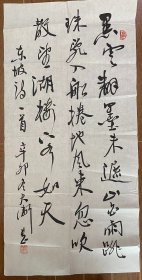 黑云翻墨未遮山白雨跳
珠乱入船捲地风来忽吹
散望湖楼下水如天
东坡诗一首 辛卯冬